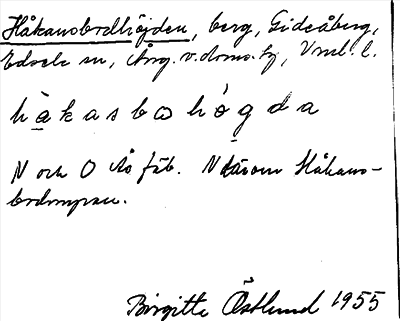 Håkansbrdhöjden, berg, Gideåberg,
Edsele sn, Ång. v. doms. hg, Vnl. l.
hàkasbohógda
N och O Ås fäb. N därom Håkans-
brdmyran.
Birgitte Östlund 1955